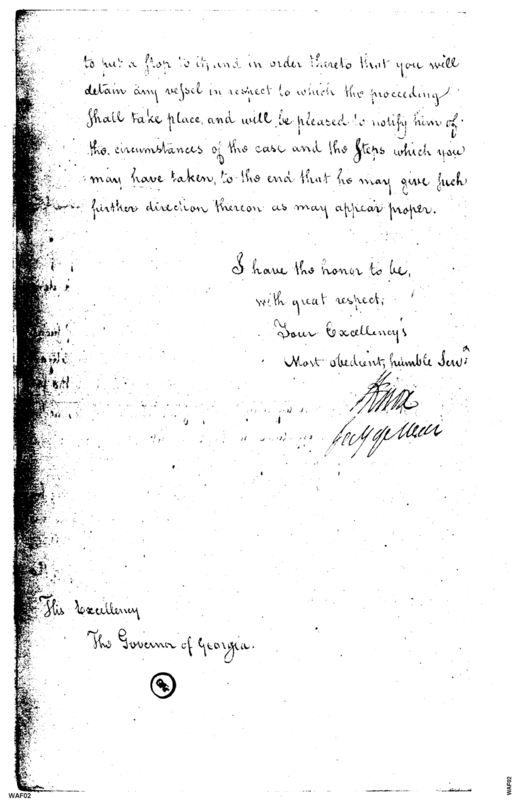 to put a stop to it, and in order thereto that you will
detain any vessel in respect to which the proceeding
shall take place, and will be pleased to notify him of
the circumstances of the case and the Steps which you
may have taken, to the end that he may give such
further direction thereon as may appear proper.
I have the honor to be,
with great respect,
Your Excellency's
Most obedient, humble Servt
HKnox
Secy of War
His Excellency
The Governor of Georgia.
WAF02
WAF02